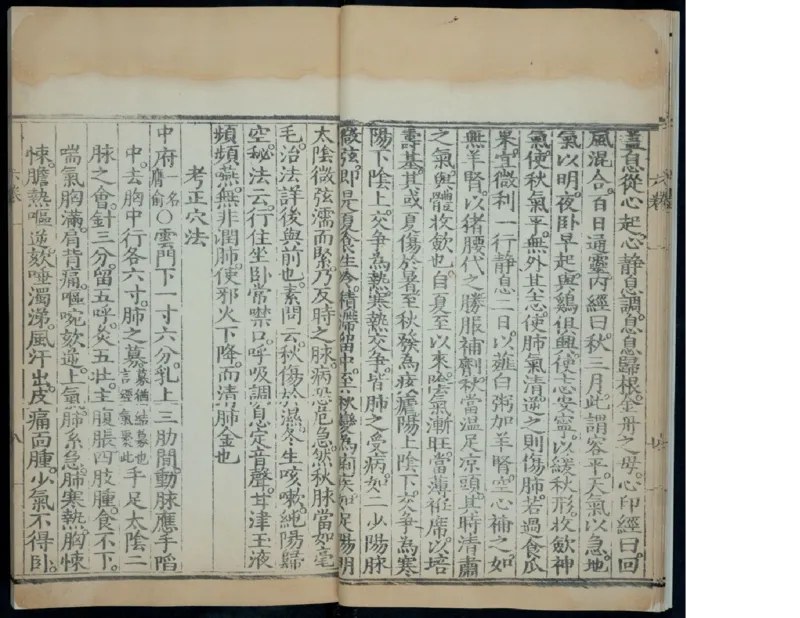 蓋息從心起心靜息調息息歸根金丹之母心印經曰回
風混合百日通靈內經曰秋三月此謂容平天氣以急地
氣以明夜臥早起與鷄俱興使志安寧以緩秋形收歛神
氣使秋氣平無外其志使肺氣清逆之則傷肺若過食瓜
果宜微利一行靜息二日以薤白粥加羊腎空心補之如
無羊腎以猪腰代之勝服補劑秋當温足凉頭其時清肅
之氣與體收歛也自夏至以來陰氣漸旺當薄袵席以培
壽基其或夏傷於暑至秋發為痎瘧陽上陰下交争為寒
陽下陰上交争為熱寒熱交争皆肺之受病如二少陽脉
微弦即是夏食生冷積滯留中至秋變為痢疾如足陽明
太陰微弦濡而緊乃反時之脉病恐危急然秋脉當如毫
毛治法詳後與前也素問云秋傷於濕冬生咳嗽純陽歸
空秘法云行住坐臥常噤口呼吸調息定音聲甘津玉液
頻頻嚥無非潤肺使邪火下降而清肺金也
考正穴法
中府一名膺俞〇雲門下一寸六分乳上三肋間動脉應手陷
中去胸中行各六寸肺之募募猶結募也言經氣聚此手足太陰二
脉之會針三分留五呼灸五壯主腹脹四肢腫食不下
喘氣胸滿肩背痛嘔啘欬逆上氣肺系急肺寒熱胸悚
悚膽熱嘔逆欬唾濁涕風汗出皮痛面腫少氣不得臥
六卷
六卷
八